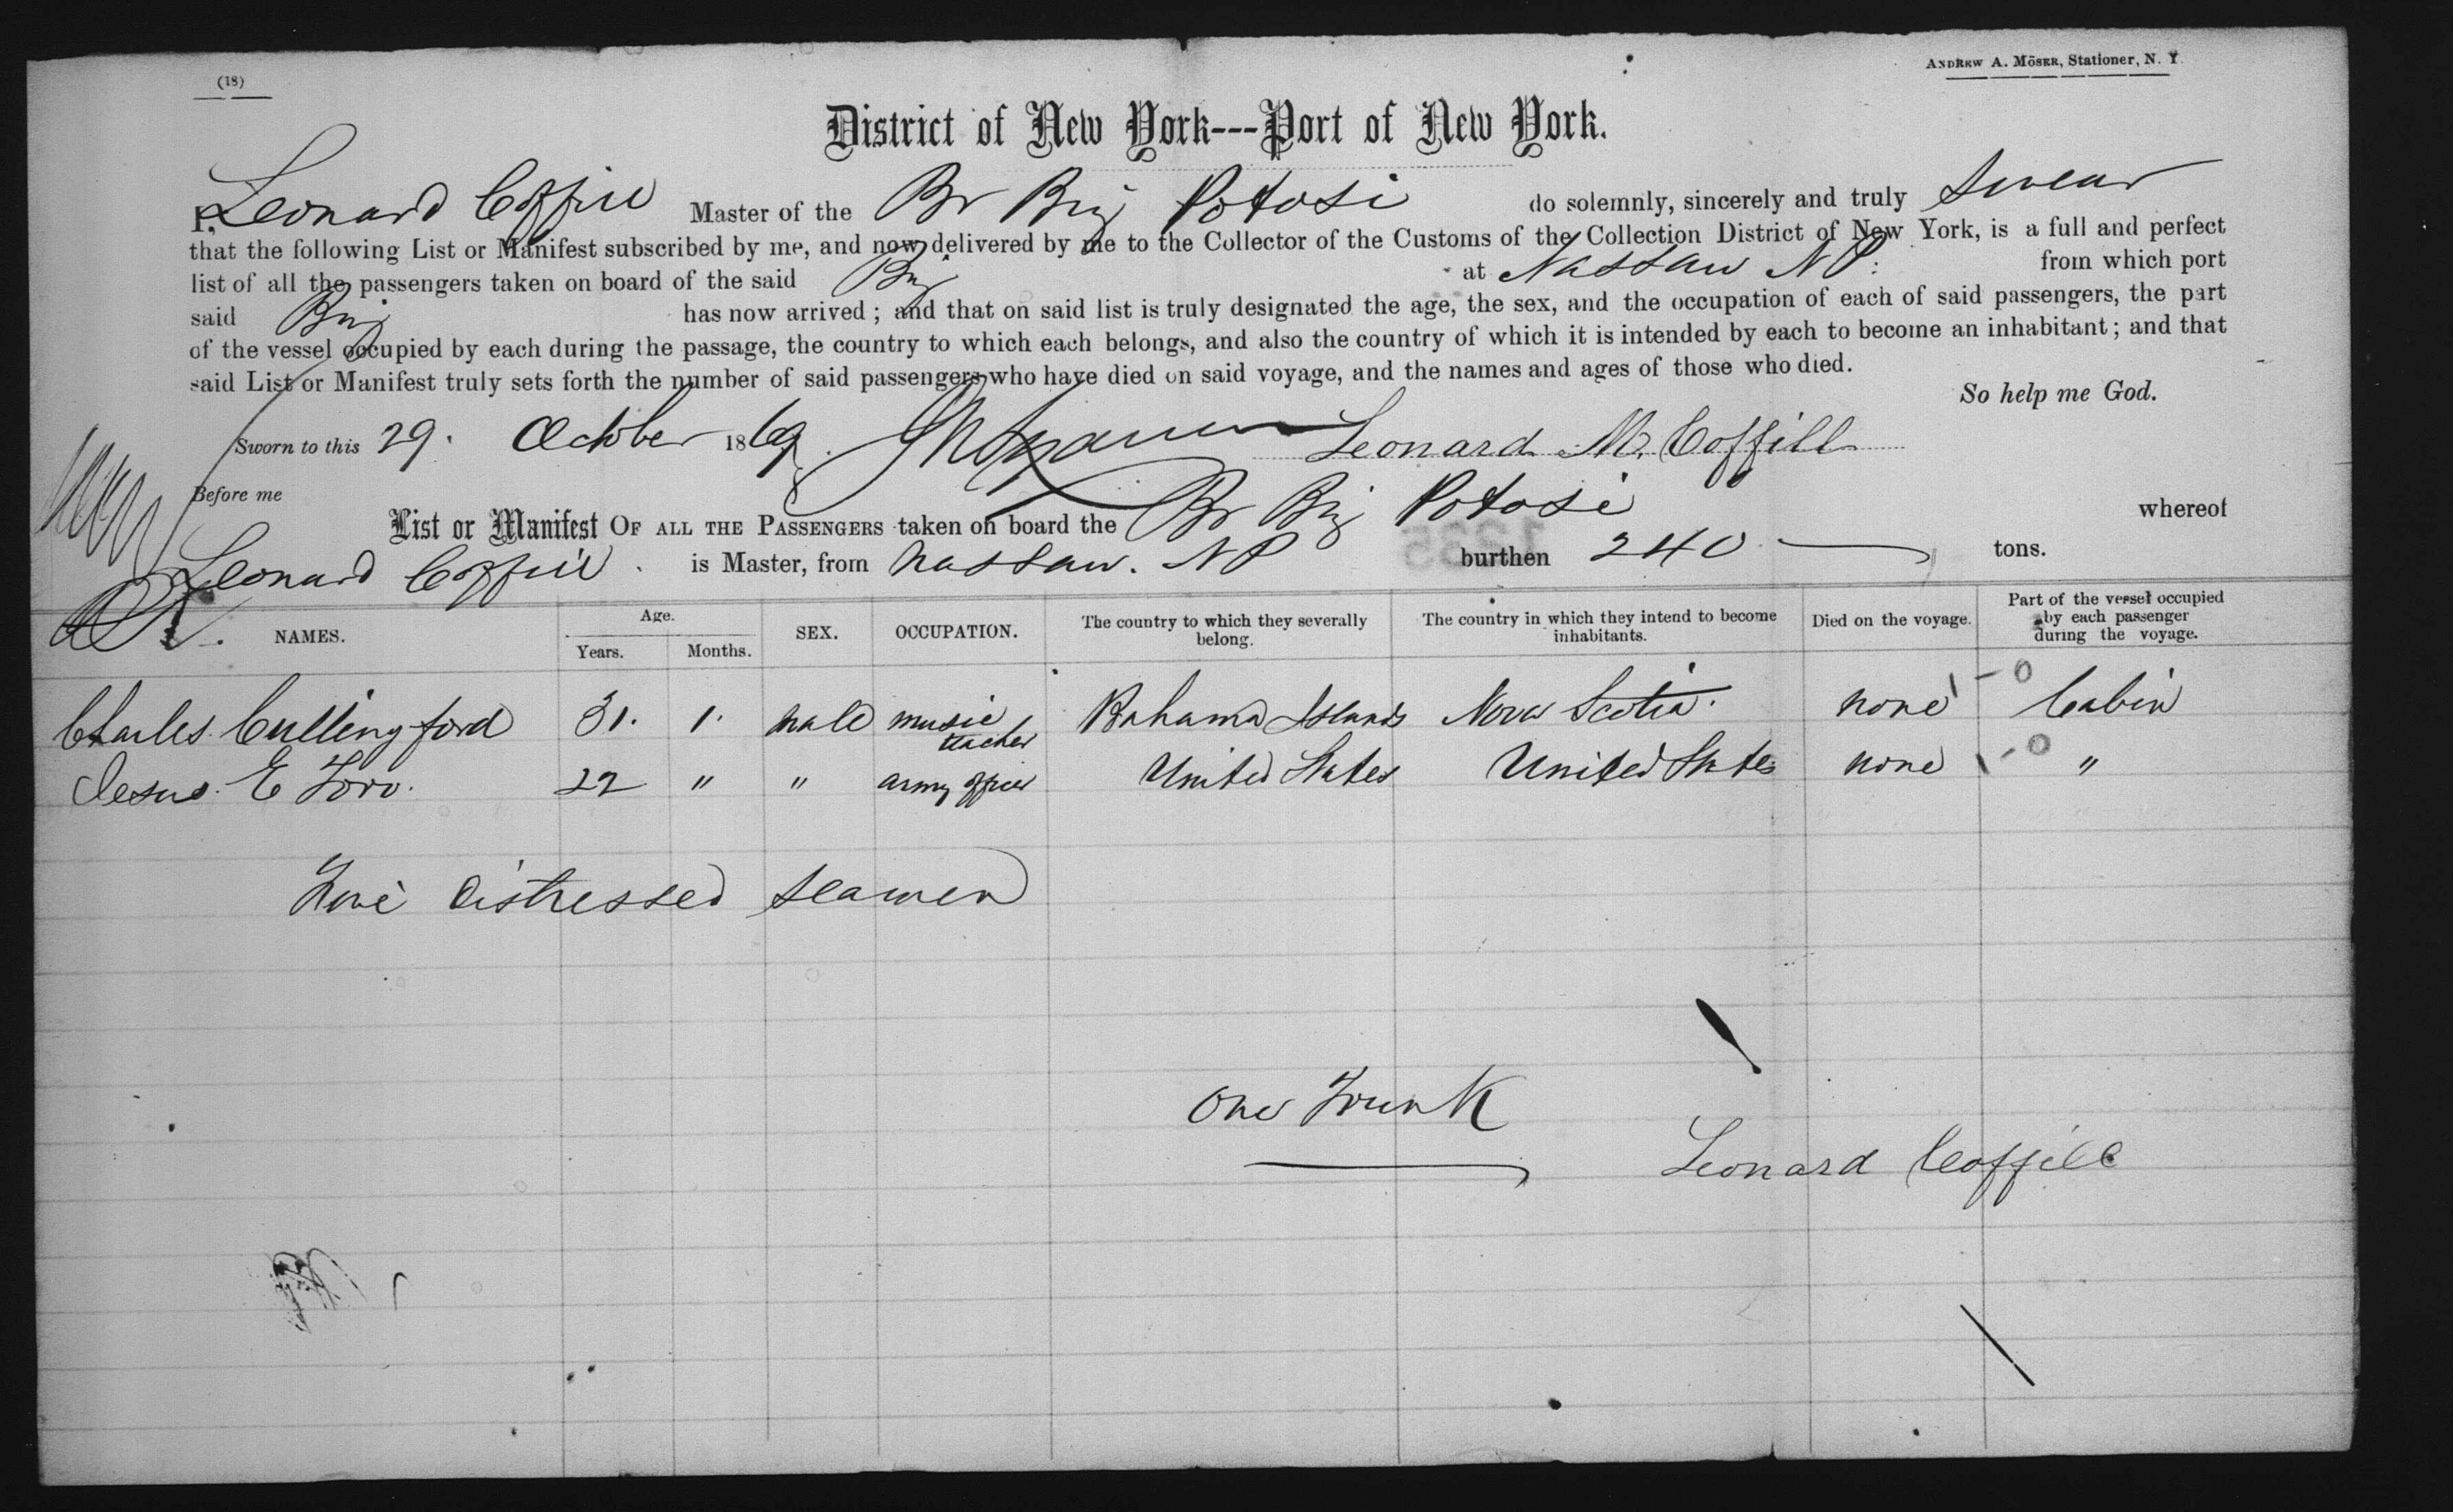 (18)
ANDREW A. MÖSER, Stationer, N. Y.
District of New York---Port of New York.
I, Leonard Coffill Master of the Br Brig Potosi do solemnly, sincerely and truly swear
that the following List or Manifest subscribed by me, and now delivered by me to the Collector of the Customs of the Collection District of New York, is a full and perfect
list of all the passengers taken on board of the said Brig at Nassau NP: from which port
said Brig has now arrived; and that on said list is truly designated the age, the sex, and the occupation of each of said passengers, the part
of the vessel occupied by each during the passage, the country to which each belongs, and also the country of which it is intended by each to become an inhabitant; and that
said List or Manifest truly sets forth the number of said passengers who have died on said voyage, and the names and ages of those who died.
So help me God.
Sworn to this 29. October 1869. Leonard M. Coffill
Before me
List or Manifest OF ALL THE PASSENGERS taken on board the Br Brig Potosi whereof
Leonard Coffill. is Master, from Nassau. NP burthen 240 tons.
NAMES. Age. Years. Months. SEX. OCCUPATION. The country to which they severally belong. The country in which they intend to become inhabitants. Died on the voyage. Part of the vessel occupied by each passenger during the voyage.
Charles Cullingford 31. 1. male music teacher Bahama Islands Nova Scotia. none Cabin
Jesus E Toro. 22 " " army officer United States United States none "
distressed seamen
One Trunk
Leonard Coffill